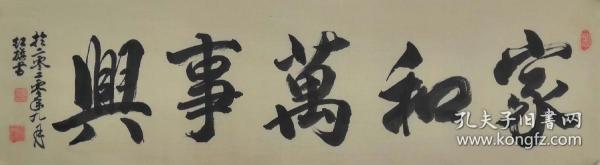 家和萬事興
於二零二零年九月
紅旗書
孔夫子旧书网
www.kongfz.com